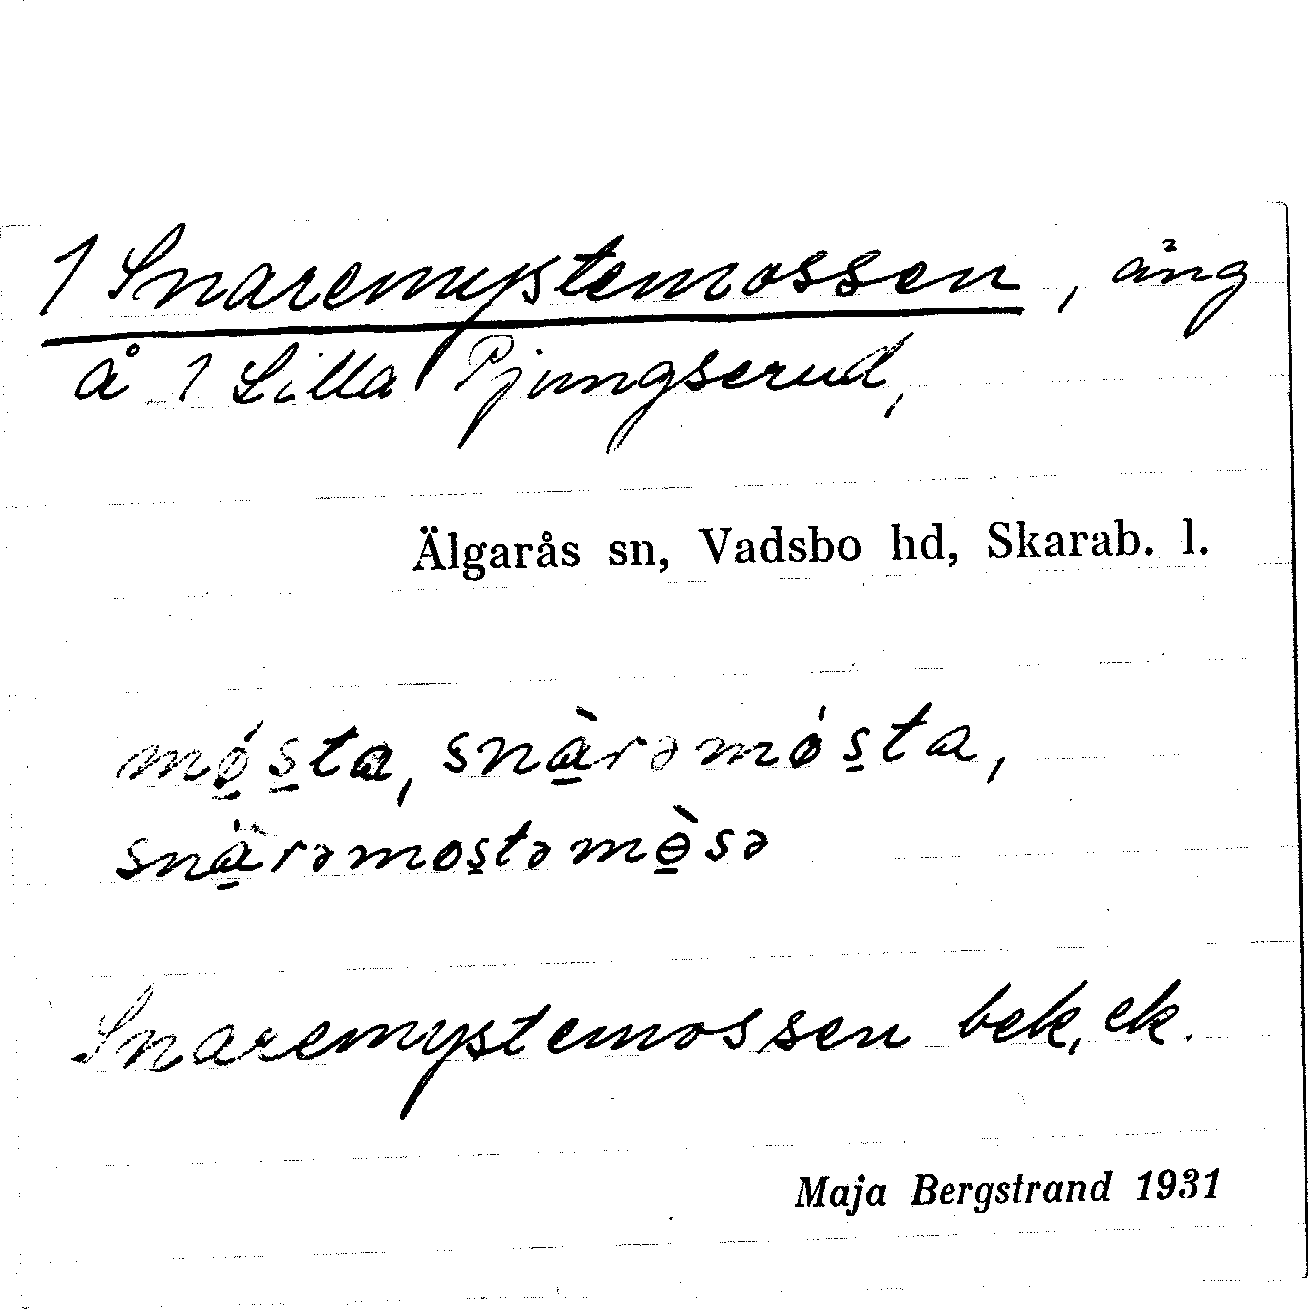 1 Snaremystemossen, äng
å 1 Lilla Pjungserud,
Älgarås sn, Vadsbo hd, Skarab. l.
mǿ̱s̱ta, snà̱rəmǿs̱ta,
snà̱rəmos̱təmɵ̱̀sə
Snaremystemossen bek, ek.
Maja Bergstrand 1931